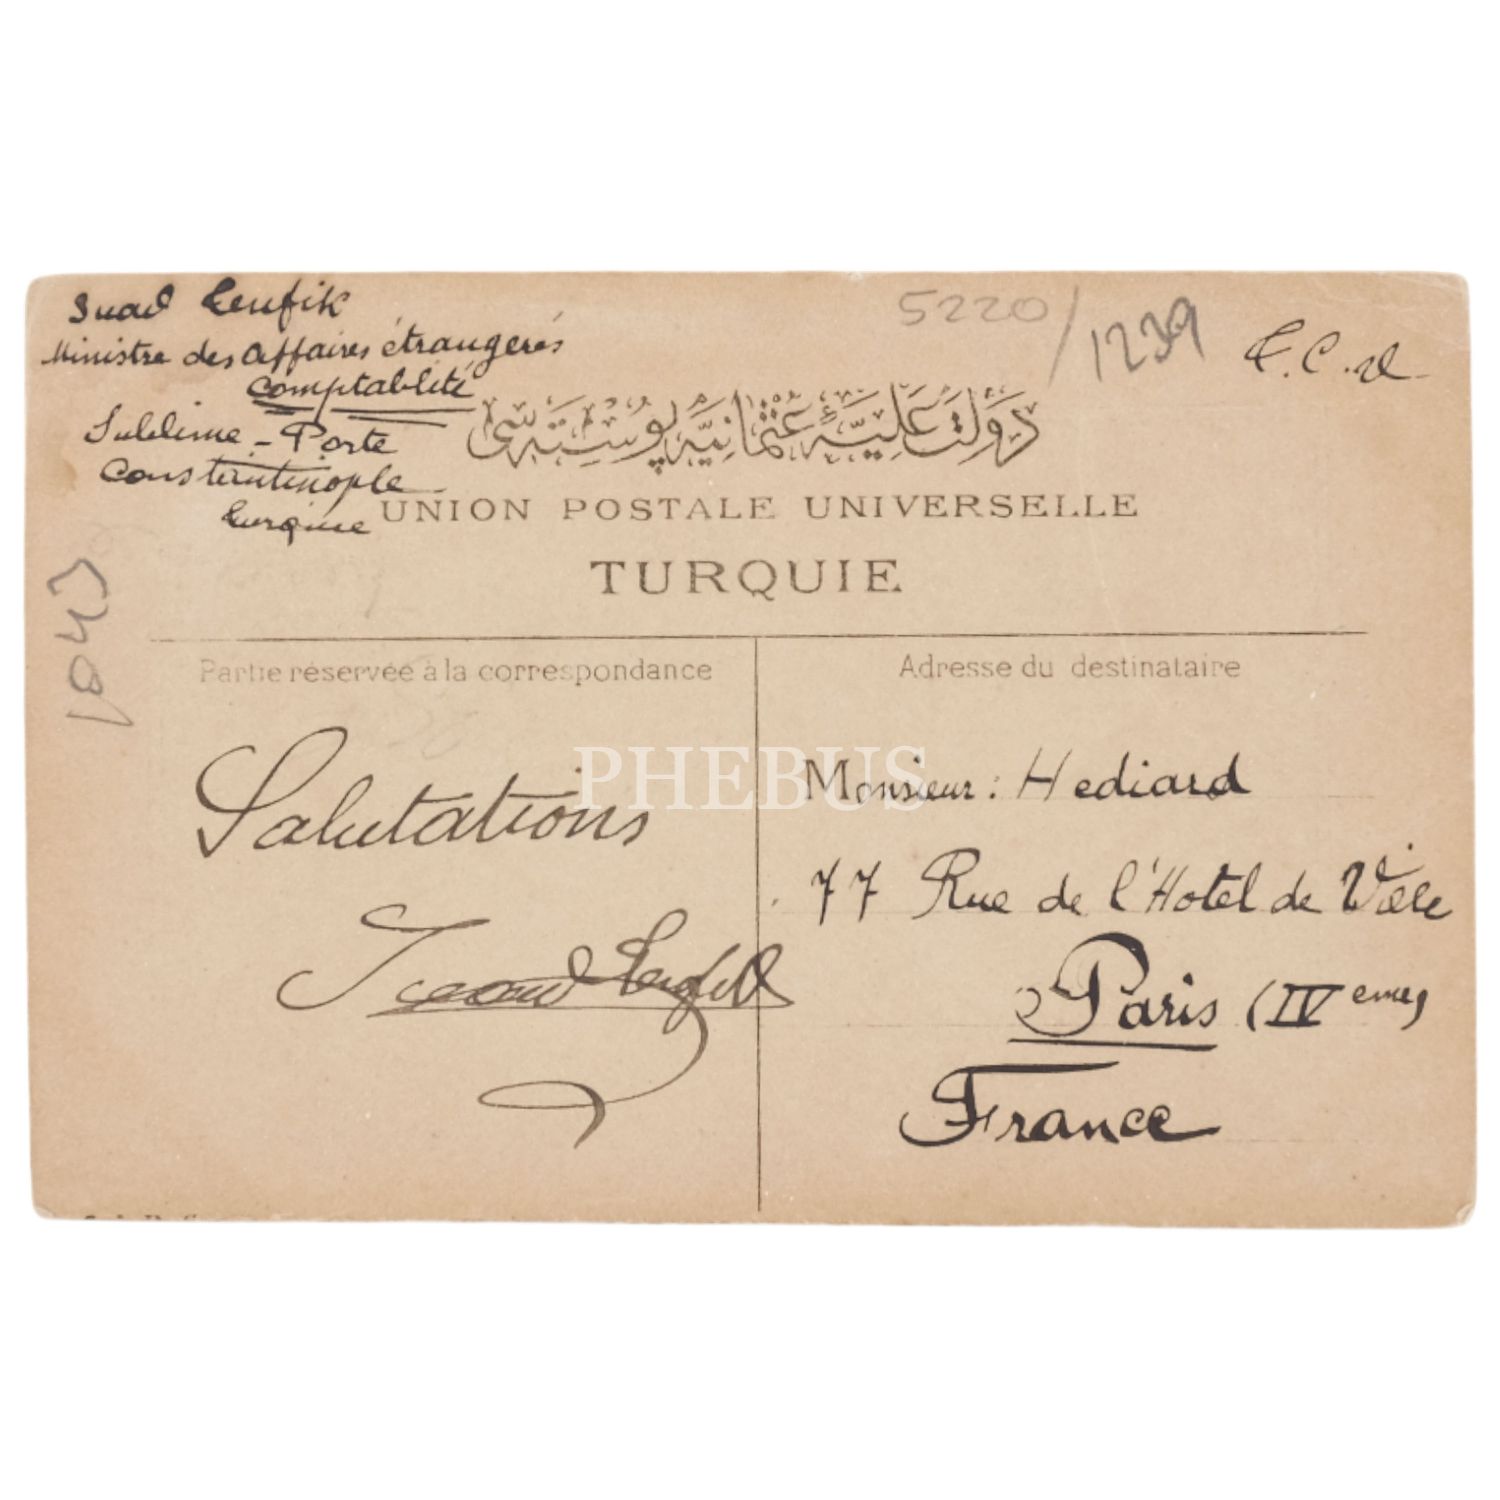 Suad Teufik
Ministre des Affaires étrangerés
Comptablité
Sublime - Porte
Constantinople
Turquie
5220/1239
T.C.V.
دولت عليۀ عثمانيه پوسته‌سى
UNION POSTALE UNIVERSELLE
TURQUIE
1043
Partie réservée à la correspondance
Salutations
Suad Teufik
Adresse du destinataire
Monsieur: Hediard
77 Rue de l'Hotel de Ville
Paris (IVeme)
France
PHEBUS